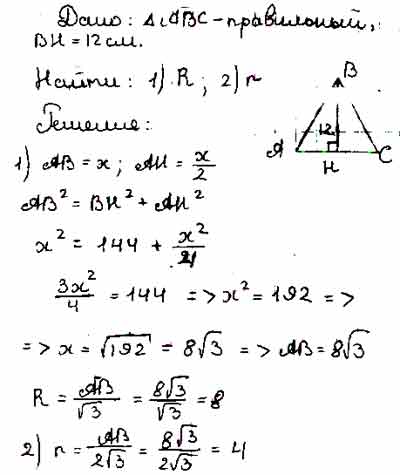 Дано: △ABC - правильный,
BH = 12 см.
Найти: 1) R; 2) r
Решение:
B
12
A
H
C
1) AB = x; AH = x/2
AB² = BH² + AH²
x² = 144 + x²/4
3x²/4 = 144 => x² = 192 =>
=> x = √192 = 8√3 => AB = 8√3
R = AB/√3 = 8√3/√3 = 8
2) r = AB/2√3 = 8√3/2√3 = 4